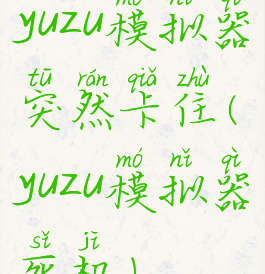 mó nǐ qì
yuzu模拟器
tū rán qiǎ zhù
突然卡住(
mó nǐ qì
yuzu模拟器
sǐ jī
死机)